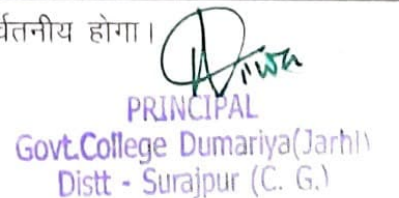 र्वतनीय होगा।
PRINCIPAL
Govt.College Dumariya(Jarhi)
Distt - Surajpur (C. G.)